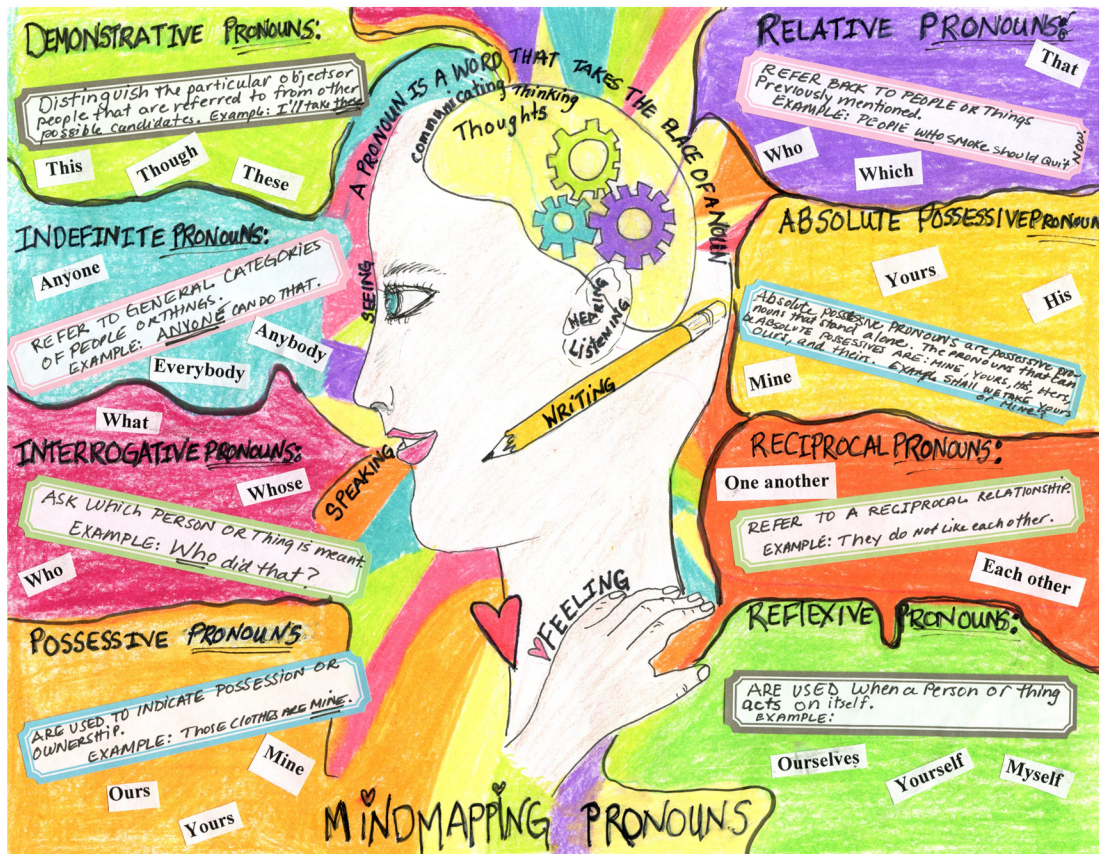 DEMONSTRATIVE PRONOUNS:
Distinguish the particular objects or
people that are referred to from other
possible candidates. Example: I'll take these
This
Though
These
INDEFINITE PRONOUNS:
Anyone
REFER TO GENERAL CATEGORIES
OF PEOPLE OR THINGS.
EXAMPLE: ANYONE CAN DO THAT.
Anybody
Everybody
What
INTERROGATIVE PRONOUNS:
Whose
ASK WHICH PERSON OR THING is MEANT.
EXAMPLE: Who did that?
Who
POSSESSIVE PRONOUNS
ARE USED TO INDICATE POSSESSION OR
OWNERSHIP.
EXAMPLE: THOSE CLOTHES ARE MINE.
Mine
Ours
Yours
A PRONOUN IS A WORD THAT TAKES THE PLACE OF A NOUN
communicating Thinking
Thoughts
SEEING
HEARING
Listening
WRITING
SPEAKING
FEELING
MINDMAPPING PRONOUNS
RELATIVE PRONOUNS:
That
REFER BACK TO PEOPLE OR THINGS
Previously mentioned.
EXAMPLE: PEOPLE WHO SMOKE SHOULD QUIT NOW.
Who
Which
ABSOLUTE POSSESSIVE PRONOUN
Yours
His
Absolute possessive PRONOUNS are possessive pro-
nouns that stand alone. The PRONOUNS that can
be ABSOLUTE POSSESSIVES ARE: MINE, YOURS, His, Hers,
OURS, and theirs. EXAMPLE SHALL WE TAKE YOURS
or MINE?
Mine
RECIPROCAL PRONOUNS:
One another
REFER TO A RECIPROCAL RELATIONSHIP.
EXAMPLE: They do not like each other.
Each other
REFLEXIVE PRONOUNS:
ARE USED When a Person or thing
acts on itself.
EXAMPLE:
Ourselves
Yourself
Myself